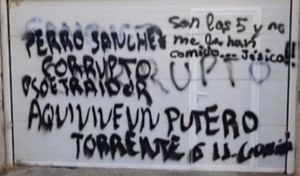 PERRO SANCHEZ
CORRUPTO
PSOE TRAIDOR
AQUI VIVE UN PUTERO
TORRENTE 6
son las 5 y no
me la han
comido... Jésica!!